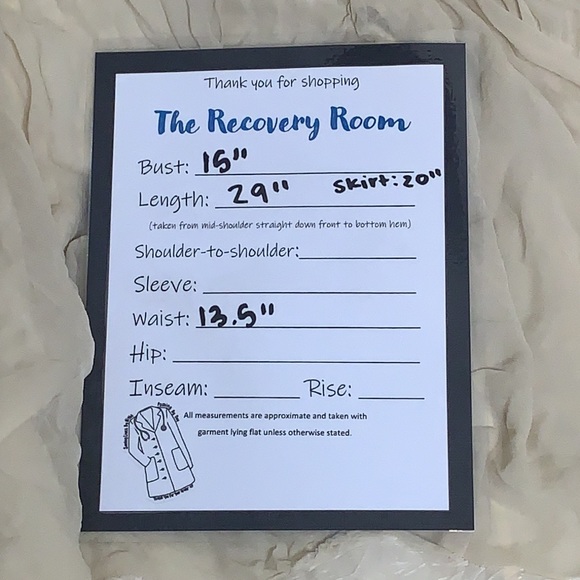 Thank you for shopping
The Recovery Room
Bust: 15"
Length: 29" Skirt: 20"
(taken from mid-shoulder straight down front to bottom hem)
Shoulder-to-shoulder:
Sleeve:
Waist: 13.5"
Hip:
Inseam: Rise:
All measurements are approximate and taken with
garment lying flat unless otherwise stated.